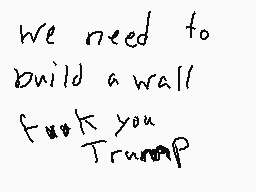 we need to
build a wall
fuuk you
Trump